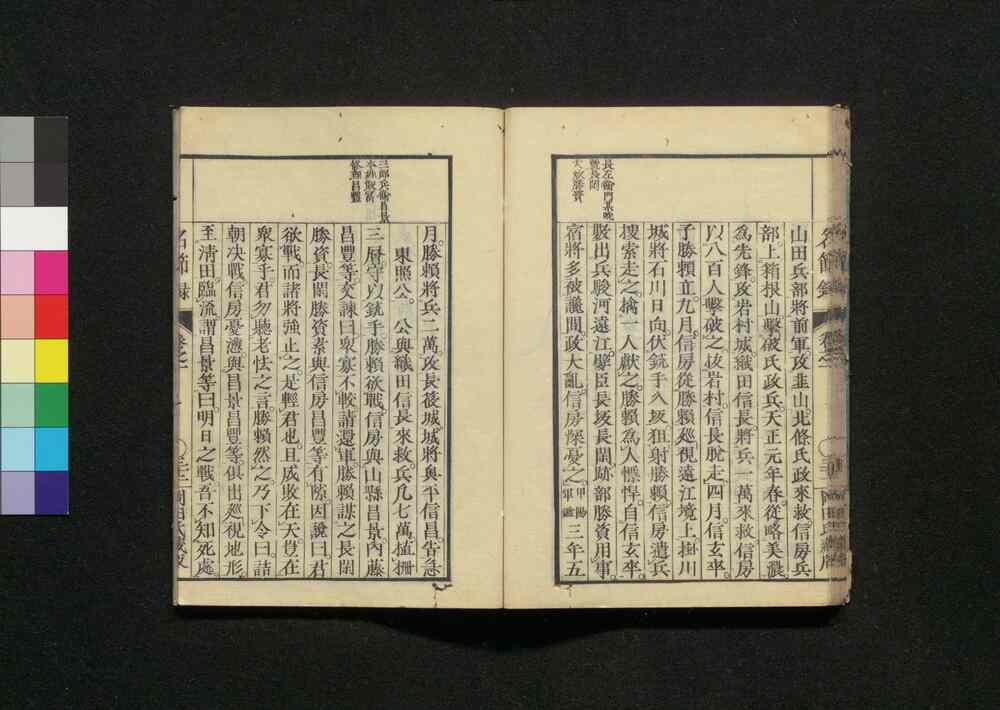 長左衛門某晩
號長閑
大炊勝資
山田兵部將前軍攻韭山北條氏政來救信房兵
部上箱根山擊破氏政兵天正元年春從略美濃
為先鋒攻岩村城織田信長將兵一萬來救信房
以八百人擊破之拔岩村信長脫走四月信玄卒
子勝賴立九月信房從勝賴巡視遠江境上掛川
城將石川日向伏銃手入坂狙射勝賴信房遣兵
搜索走之擒一人獻之勝賴為人慓悍自信玄卒
數出兵駿河遠江嬖臣長坂長閑跡部勝資用事
宿將多被讒間政大亂信房深憂之甲陽軍鑑三年五
三郎兵衛昌景
修理昌豐
月勝賴將兵二萬攻長篠城城將奥平信昌告急
東照公公與織田信長來救兵凡七萬植柵
三層守以銃手勝賴欲戰信房與山縣昌景內藤
昌豐等交諫曰眾寡不敵請還軍勝賴謀之長閑
勝資長閑勝資素與信房昌豐等有隙因說曰君
欲戰而諸將強止之是輕君也且成敗在天豈在
眾寡乎君勿聽老怯之言勝賴然之乃下令曰詰
朝決戰信房憂懣與昌景昌豐等俱出巡視地形
至淸田臨流謂昌景等曰明日之戰吾不知死處
名節錄